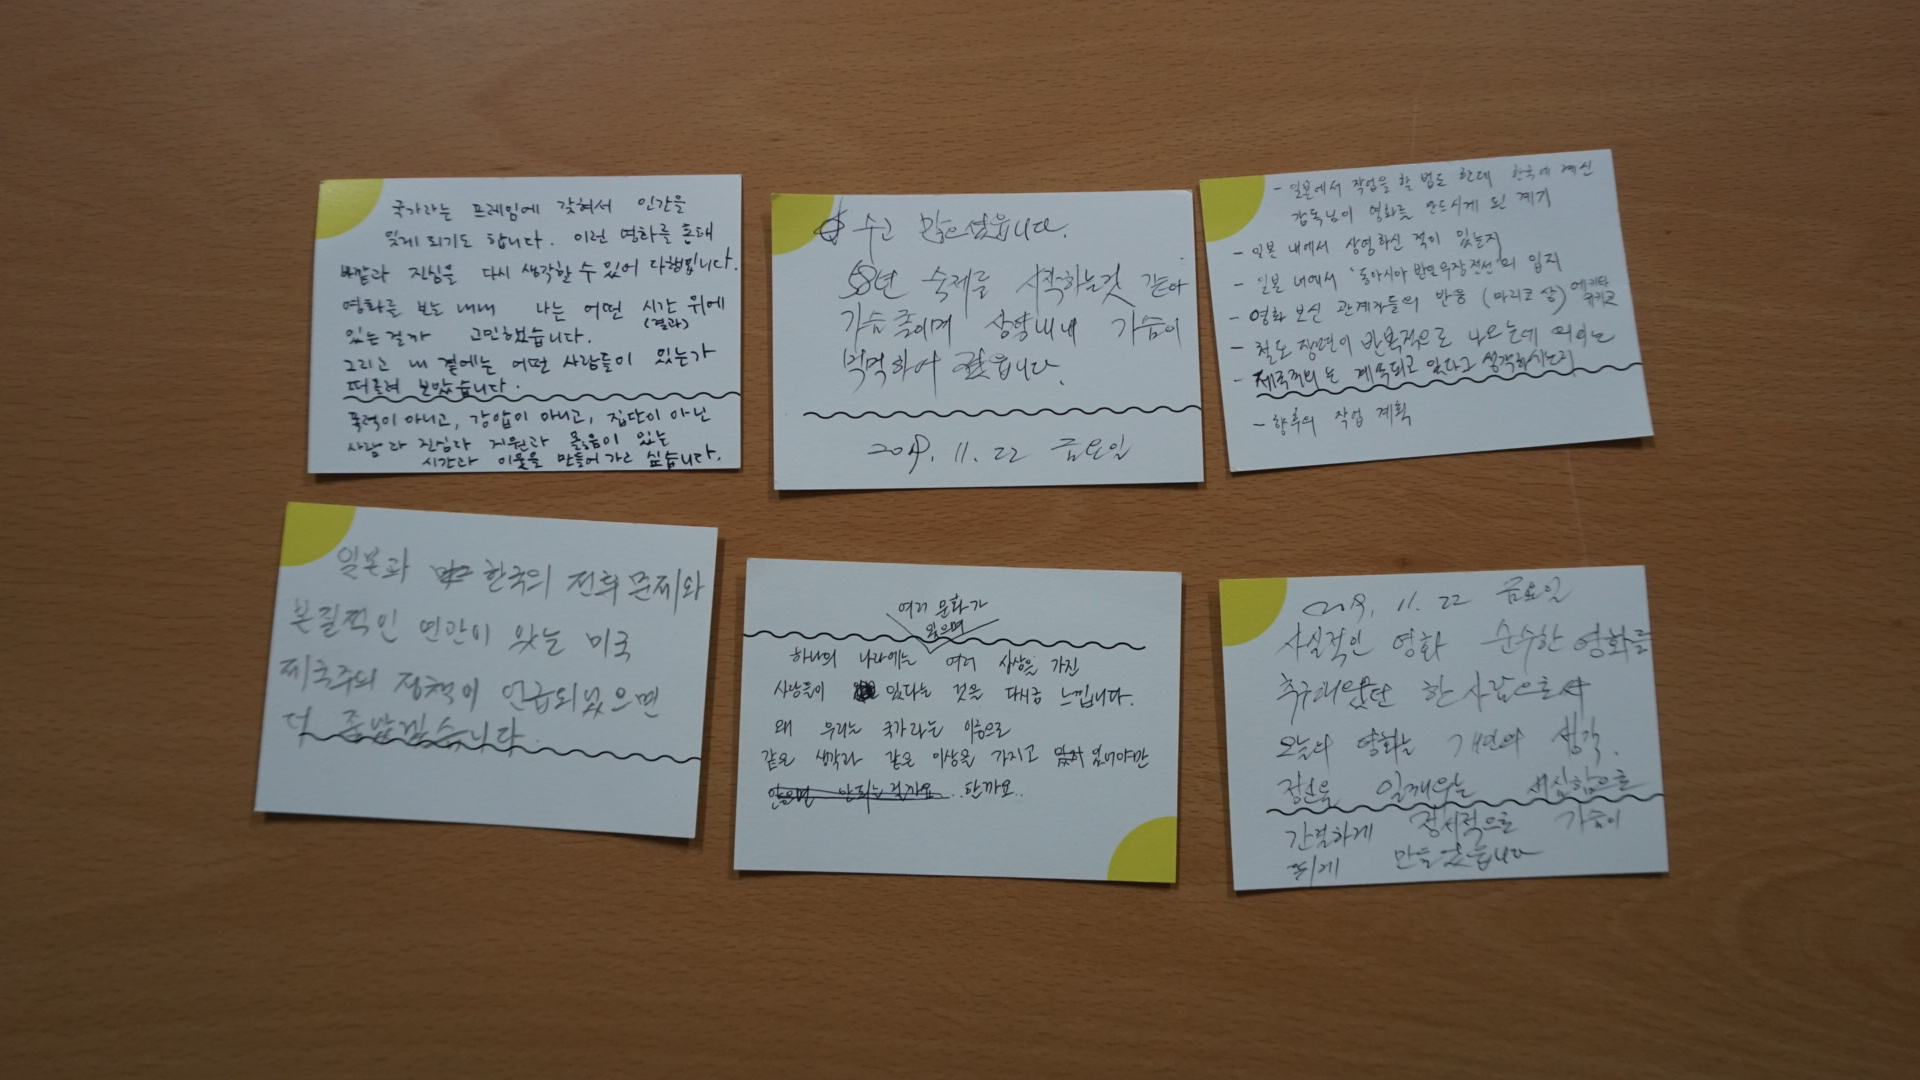 국가라는 프레임에 갖혀서 인간을
잊게 되기도 합니다. 이런 영화를 통해
바깥과 진심을 다시 생각할 수 있어 다행입니다.
영화를 보는 내내 나는 어떤 시간 위에
(결과)
있는 걸까 고민했습니다.
그리고 내 곁에는 어떤 사람들이 있는가
떠올려 보았습니다.
폭력이 아니고, 강압이 아니고, 집단이 아닌
사람과 진심과 지원과 물음이 있는
시간과 이웃을 만들어 가고 싶습니다.
수고 많으셨습니다.
58년 숙제를 시작하는것 같아
가슴 졸이며 상영내내 가슴이
먹먹하여 졌습니다.
2019. 11. 22 금요일
- 일본에서 작업을 할 법도 한데 한국에 계신
감독님이 영화를 만드시게 된 계기
- 일본 내에서 상영하신 적이 있는지
- 일본 내에서 '동아시아 반일무장전선'의 입지
- 영화 보신 관계자들의 반응 (마리코 상) 에키타 유키코
- 철도 장면이 반복적으로 나오는데 의미는
- 제국주의는 계속되고 있다고 생각하시는지
- 향후의 작업 계획
일본과 한국의 전후 문제와
본질적인 연관이 있는 미국
제국주의 정책이 언급되었으면
더 좋았겠습니다.
여러 문화가
있으며
하나의 나라에는 여러 사상을 가진
사람들이 있다는 것을 다시금 느낍니다.
왜 우리는 국가라는 이름으로
같은 생각과 같은 이상을 가지고 있어야만
않으면 안되는 걸까요 .. 할까요..
2019. 11. 22 금요일
사실적인 영화 순수한 영화를
추구해왔던 한 사람으로서
오늘의 영화는 개인의 생각.
정신을 일깨우는 세심함으로
간결하게 정서적으로 가슴이
뛰게 만들었습니다